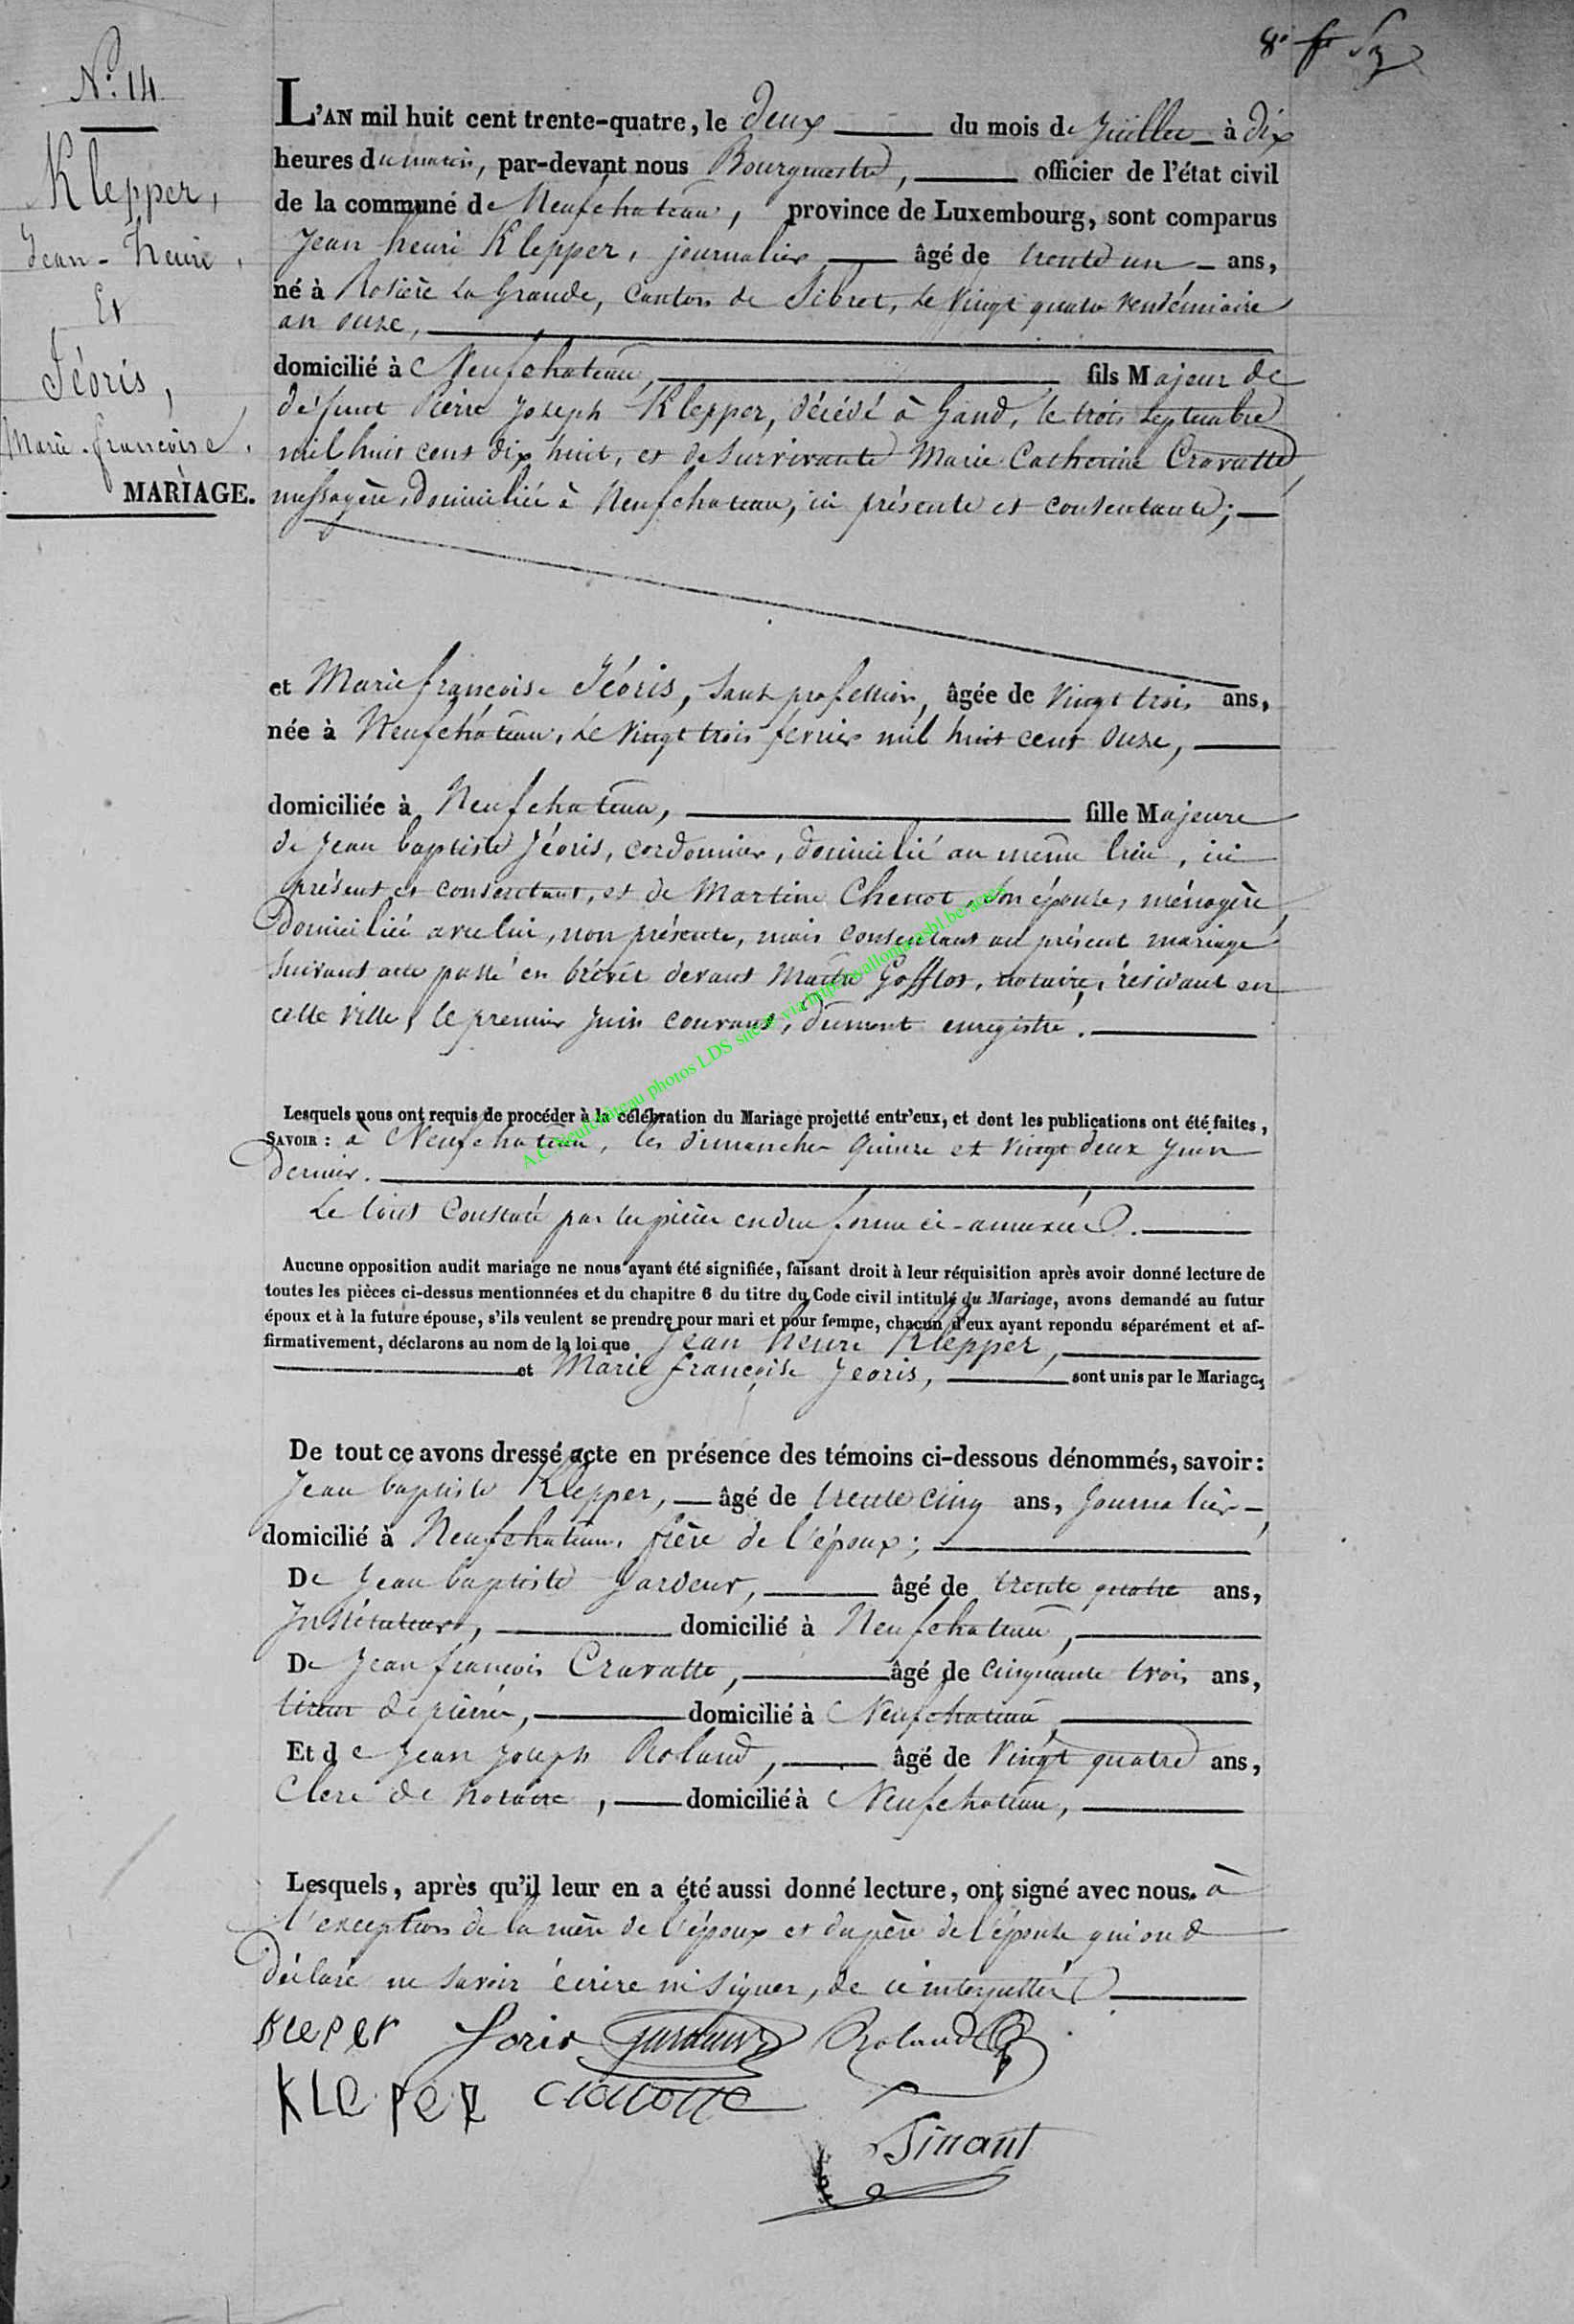 8e
N.° 14
Klepper,
Jean-henri,
Et
Jéoris,
Marie-françoise.
MARIAGE.
L'AN mil huit cent trente-quatre, le deux du mois de Juillet à dix
heures du matin, par-devant nous Bourgmestre, officier de l'état civil
de la commune de Neufchateau, province de Luxembourg, sont comparus
Jean henri Klepper, journalier âgé de trente un ans,
né à Rosière la Grande, canton de Sibret, le vingt quatre vendémiaire
an onze,
domicilié à Neufchateau, fils Majeur de
défunt Pierre Joseph Klepper, décédé à Gand, le trois septembre
mil huit cent dix huit, et de survivante Marie Catherine Cravatte,
messagère, domiciliée à Neufchateau, ici présente et consentante;
et Marie françoise Jéoris, sans profession, âgée de vingt trois ans,
née à Neufchateau, le vingt trois fevrier mil huit cent onze,
domiciliée à Neufchateau, fille Majeure
de Jean baptiste Jéoris, cordonnier, domicilié au même lieu, ici
présent et consentant, et de Martine Chenot, son épouse, ménagère,
domiciliée avec lui, non présente, mais consentant au présent mariage
suivant acte passé en brévet devant Maître Gofflot, notaire, résidant en
cette ville, le premier juin courant, dument enregistré.
A.C. Neufchâteau photos LDS site via http://wallonia-asbl.be
Lesquels nous ont requis de procéder à la célébration du Mariage projetté entr'eux, et dont les publications ont été faites,
SAVOIR : à Neufchateau, les dimanches quinze et vingt deux Juin
dernier.
Le tout constaté par les pièces en due forme ci-annexées.
Aucune opposition audit mariage ne nous ayant été signifiée, faisant droit à leur réquisition après avoir donné lecture de
toutes les pièces ci-dessus mentionnées et du chapitre 6 du titre du Code civil intitulé du Mariage, avons demandé au futur
époux et à la future épouse, s'ils veulent se prendre pour mari et pour femme, chacun d'eux ayant repondu séparément et af-
firmativement, déclarons au nom de la loi que Jean henri Klepper,
et Marie françoise Jeoris, sont unis par le Mariage,
De tout ce avons dressé acte en présence des témoins ci-dessous dénommés, savoir:
Jean baptiste Klepper, âgé de trente cinq ans, Journalier,
domicilié à Neufchateau, frère de l'époux;
De Jean baptiste Jardeur, âgé de trente quatre ans,
Instituteur, domicilié à Neufchateau,
De Jean françois Cravatte, âgé de cinquante trois ans,
tireur de pierres, domicilié à Neufchateau,
Et de Jean Joseph Roland, âgé de vingt quatre ans,
Clerc de notaire, domicilié à Neufchateau,
Lesquels, après qu'il leur en a été aussi donné lecture, ont signé avec nous. à
l'exception de la mère de l'époux et du père de l'épouse qui ont
déclaré ne savoir écrire ni signer, de ce interpellés
KLEPER Joris Jardeur Roland
KLEPER Cravatte
Dinant